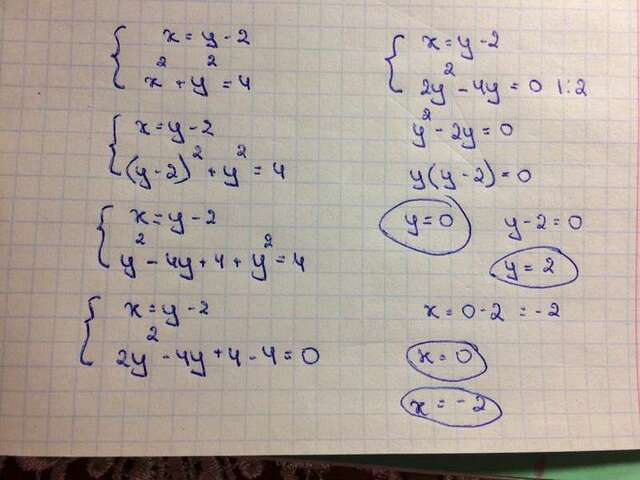 x = y - 2
x² + y² = 4
x = y - 2
(y - 2)² + y² = 4
x = y - 2
y² - 4y + 4 + y² = 4
x = y - 2
2y² - 4y + 4 - 4 = 0
x = y - 2
2y² - 4y = 0 |:2
y² - 2y = 0
y(y - 2) = 0
y = 0 y - 2 = 0
y = 2
x = 0 - 2 = -2
x = 0
x = -2